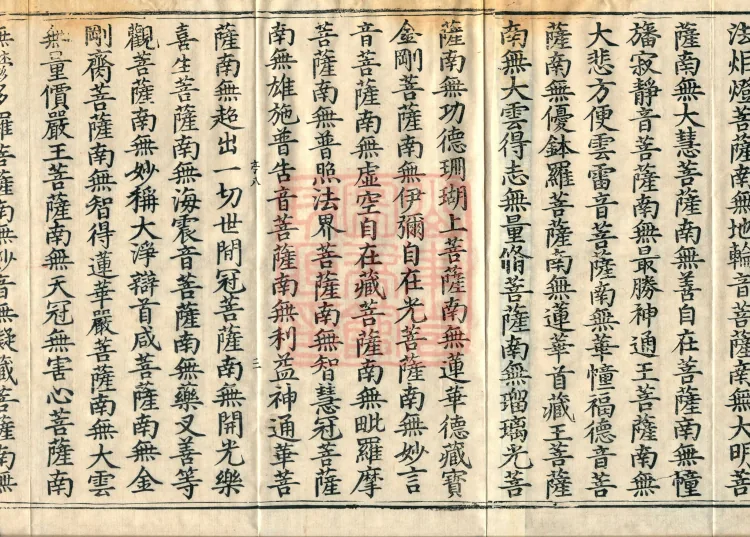 法炬燈菩薩南無地輪音菩薩南無大明菩
薩南無大慧菩薩南無善自在菩薩南無幢
旛寂靜音菩薩南無最勝神通王菩薩南無
大悲方便雲雷音菩薩南無華幢福德音菩
薩南無優鉢羅菩薩南無蓮華首藏王菩薩
南無大雲得志無量脩菩薩南無瑠璃光菩
薩南無功德珊瑚上菩薩南無蓮華德藏寶
金剛菩薩南無伊彌自在光菩薩南無妙言
音菩薩南無虛空自在藏菩薩南無毗羅摩
菩薩南無普照法界菩薩南無智慧冠菩薩
南無雄施普告音菩薩南無利益神通華菩
薩南無超出一切世間冠菩薩南無開光樂
喜生菩薩南無海震音菩薩南無藥叉善等
觀菩薩南無妙稱大淨辯首咸菩薩南無金
剛齎菩薩南無智得蓮華嚴菩薩南無大雲
無量價嚴王菩薩南無天冠無害心菩薩南
多羅菩薩南無妙音無礙藏菩薩南無